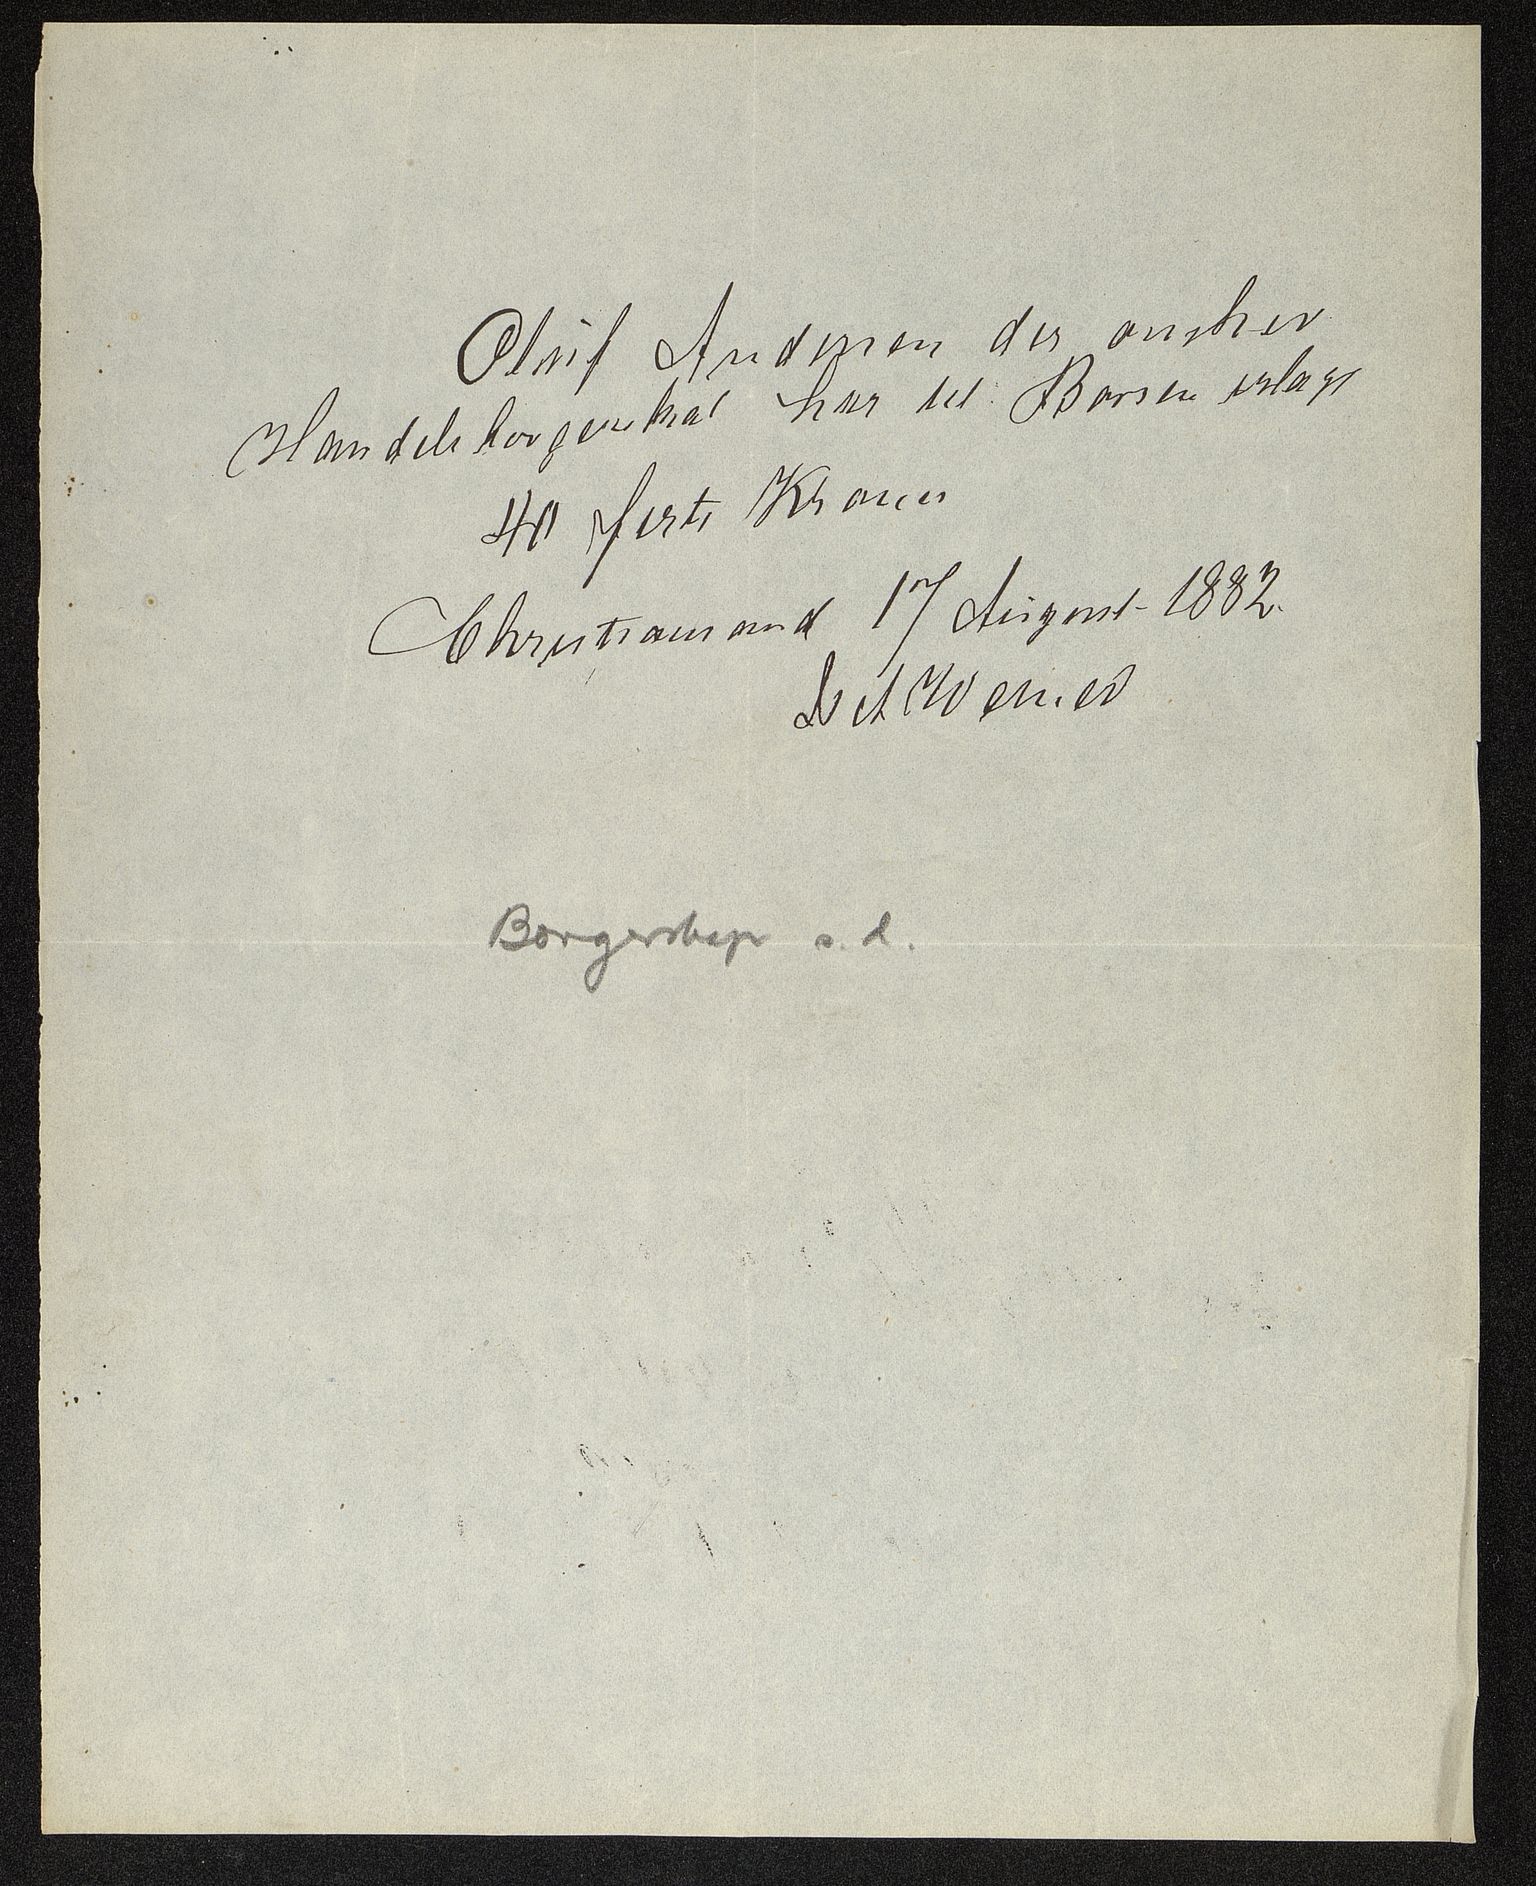 Oluf Andersen der ønsker
Handelsborgerskab har til Børsen erlagt
40 førti Kroner
Christianssand 17 August 1882.
Borgerskap s. d.